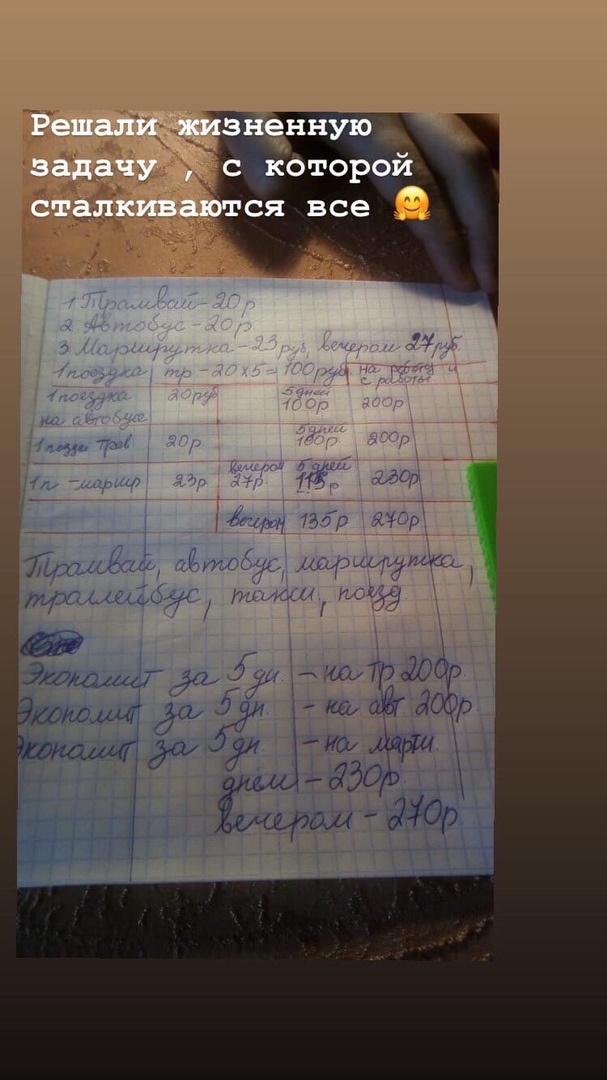 Решали жизненную
задачу , с которой
сталкиваются все 🤗
1 Трамвай - 20 р
2. Автобус - 20 р
3. Маршрутка - 23 руб, вечером 27 руб.
1 поездка тр - 20 х 5 = 100 руб на работу и
с работы
1 поездка 20 руб 5 дней
на автобусе 100р 200р
5 дней
1 поезд трам 20 р. 100р 200р
вечером 5 дней
1 п - маршр 23р. 27р. 115р 230р
вечером 135р 270р
Трамвай, автобус, маршрутка,
троллейбус, такси, поезд
Экономит за 5 дн. - на тр 200р.
Экономит за 5 дн - на авт 200р
Экономит за 5 дн - на
днем - 230р.
вечером - 270р